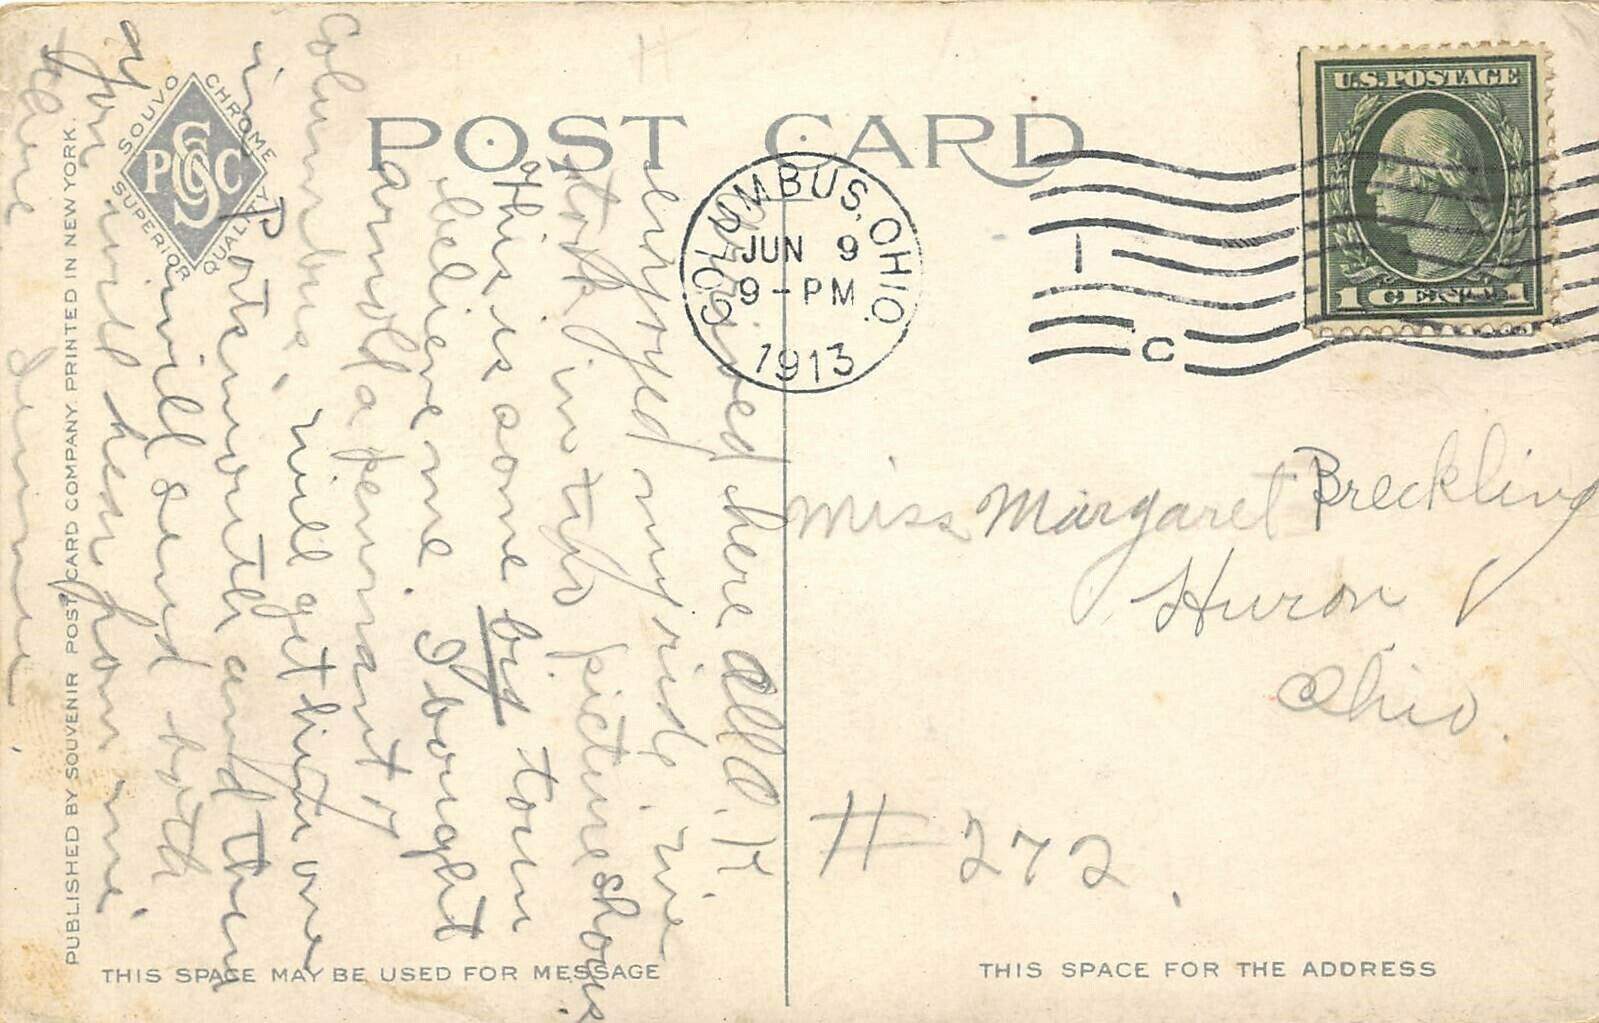 POST CARD
SOUVO CHROME
SUPERIOR QUALITY
PSC Co
PUBLISHED BY SOUVENIR POST CARD COMPANY PRINTED IN NEW YORK.
Arrived here all O.K.
enjoyed my ride, we
took in two picture shows
this is some big town
believe me. I bought
Arnold a pennant of
Columbus, will get him one
in Portsmouth and then
I will send both
you will hear from me.
THIS SPACE MAY BE USED FOR MESSAGE
COLUMBUS, OHIO.
JUN 9
9-PM
1913
1 C
U.S. POSTAGE
1 CENT 1
Miss Margaret Breckling
Huron
Ohio.
# 272.
THIS SPACE FOR THE ADDRESS